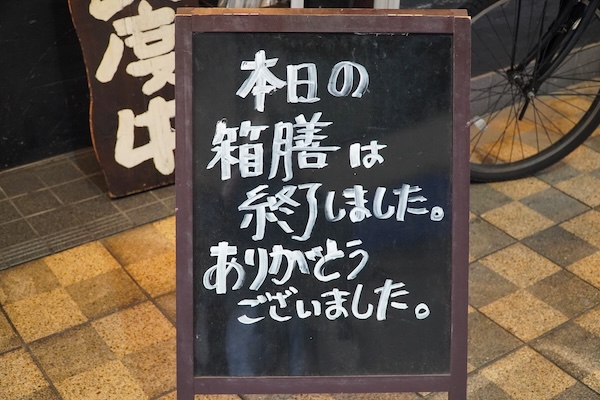 本日の
箱膳は
終了しました。
ありがとう
ございました。
度中